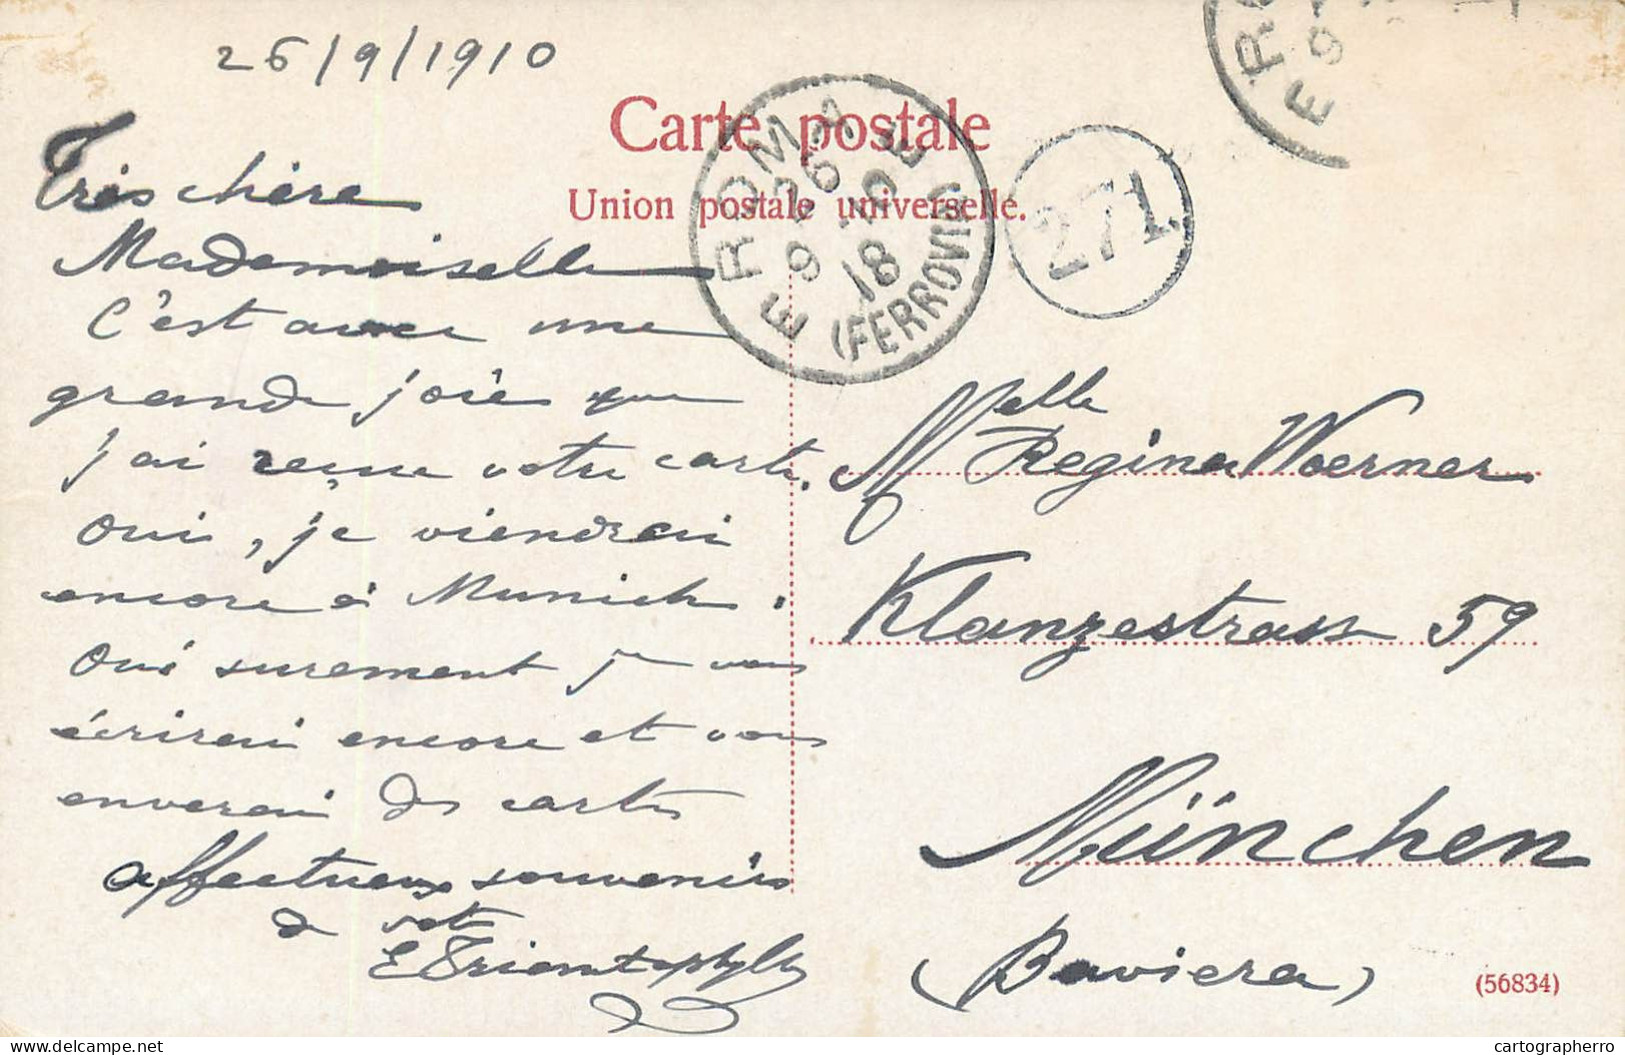 26/9/1910
Carte postale
Union postale universelle.
ROMA
26
9 10
18
E E
(FERROVIA)
271.
RO
E 9
Très chère
Mademoiselle
C'est avec une
grande joie que
j'ai reçue votre carte.
oui, je viendrai
encore à Munich.
Oui surement je vous
écrirai encore et vous
enverai des cartes
affectueux souvenirs
de votre
E Triantaphylle
Melle Regina Woerner
Klanzestrasse 59
München
(Baviera)
(56834)
delcampe.net
cartographerro